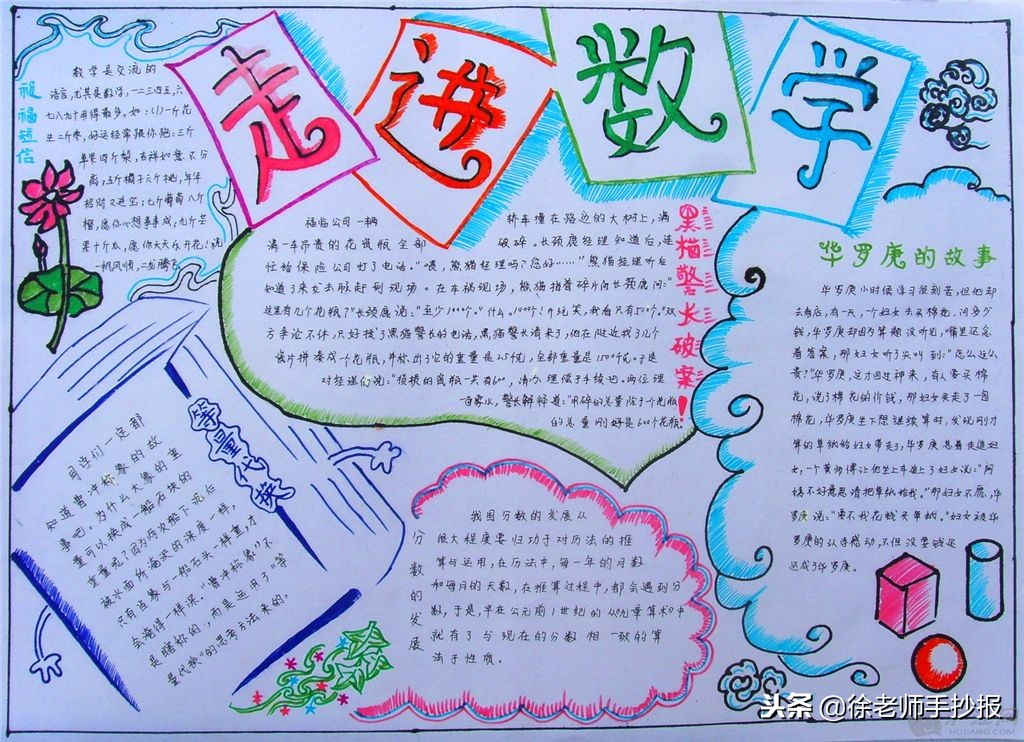 走进数学
祝福短信
数学是交流的
语言,尤其是数字,一二三四五六
七八九十用得最多。如:(1)一斤花
生二斤枣,好运经常跟你跑;三斤
苹果四斤梨,吉祥如意不分
离;五斤橘子六斤桃,年年
招财又进宝;七斤葡萄八斤
橙,愿你心想事事成;九斤芒
果十斤瓜,愿你天天乐开花!祝
一帆风顺,二龙腾飞
黑猫警长破案!
福临公司一辆
满满一车昂贵的花瓷瓶全部
忙给保险公司打了电话。“喂,熊猫经理吗?您好……”熊猫经理听后
知道了来龙去脉赶到现场。在车祸现场,熊猫指着碎片问长颈鹿问:“
这里有几个花瓶?”长颈鹿说:“至少1000个。”“什么。1000个!开玩笑,我看只有500个。”双
方争论不休,只好找了黑猫警长的电话,黑猫警长请来了,他在附近找了几个
瓷片拼凑成一个花瓶,并称出了它的重量是2.5千克,全部重量是1500千克。于是
对经理们说:“损损的瓷瓶一共有600,请办理余下手续吧。两位理
轿车撞在路边的大树上,满
破碎。长颈鹿经理知道后,连
百雾水,警长解释道:“用碎的总量除于个花瓶
的总量刚好是600个花瓶。
华罗庚的故事
华罗庚小时候学习很刻苦,但他却
去看店,有一天,一个妇女去买棉花,问多少
钱,华罗庚却因为算题没听见,嘴里还念
着答案,那妇女听了尖叫到:“怎么这么
贵?”华罗庚,这才回过神来,有人要买棉
花,说了棉花的价钱,那妇女买走了一包
棉花,华罗庚坐下想继续算时,发现刚才
算的草纸给妇女带走了,华罗庚急着走追妇
女,一个黄师傅让他坐上车追上了妇女说:“阿
姨不好意思请把草纸给我。”那妇女不愿,华
罗庚说:“要不我花钱买草纸。”妇女被华
罗庚的认真感动,不但没要钱还
还成了华罗庚。
等量代换
同学们一定都
知道曹冲称象的故
事吧。为什么大象的重
量可以换成一船石块的
重量呢?因为两次船下沉后
被水面所淹没的深度一样,
只有当象与一船石头一样重,才
会淹得一样深。“曹冲称象”不
是瞎称的,而是运用了“等
量代换”的思考方法来的。
分数的发展
我国分数的发展从
很大程度要归功于对历法的推
算与运用,在历法中,每一年的月数
和每月的天数,在推算过程中,都会遇到分
数,于是,早在公元前1世纪的《九章算术》中
就有了与现在的分数相一致的算
法于性质。
头条 @徐老师手抄报
HUJIANG.COM